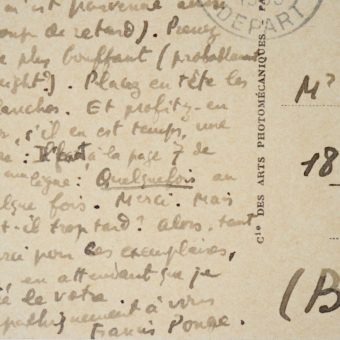 m'est parvenue ainsi
coup de retard). Prenez
le plus bouffant (probablement
). Placez en tête les
blanches. Et profitez-en
s'il en est temps, une
: Il faut à la page 7 de
ligne : Quelquefois au
quelque fois. Merci. Mais
est-il trop tard ? Alors, tant
merci pour les exemplaires,
en attendant que je
de le votre
sympathiquement à vous
Francis Ponge.
DEPART
Cie DES ARTS PHOTOMÉCANIQUES
M
18
(B